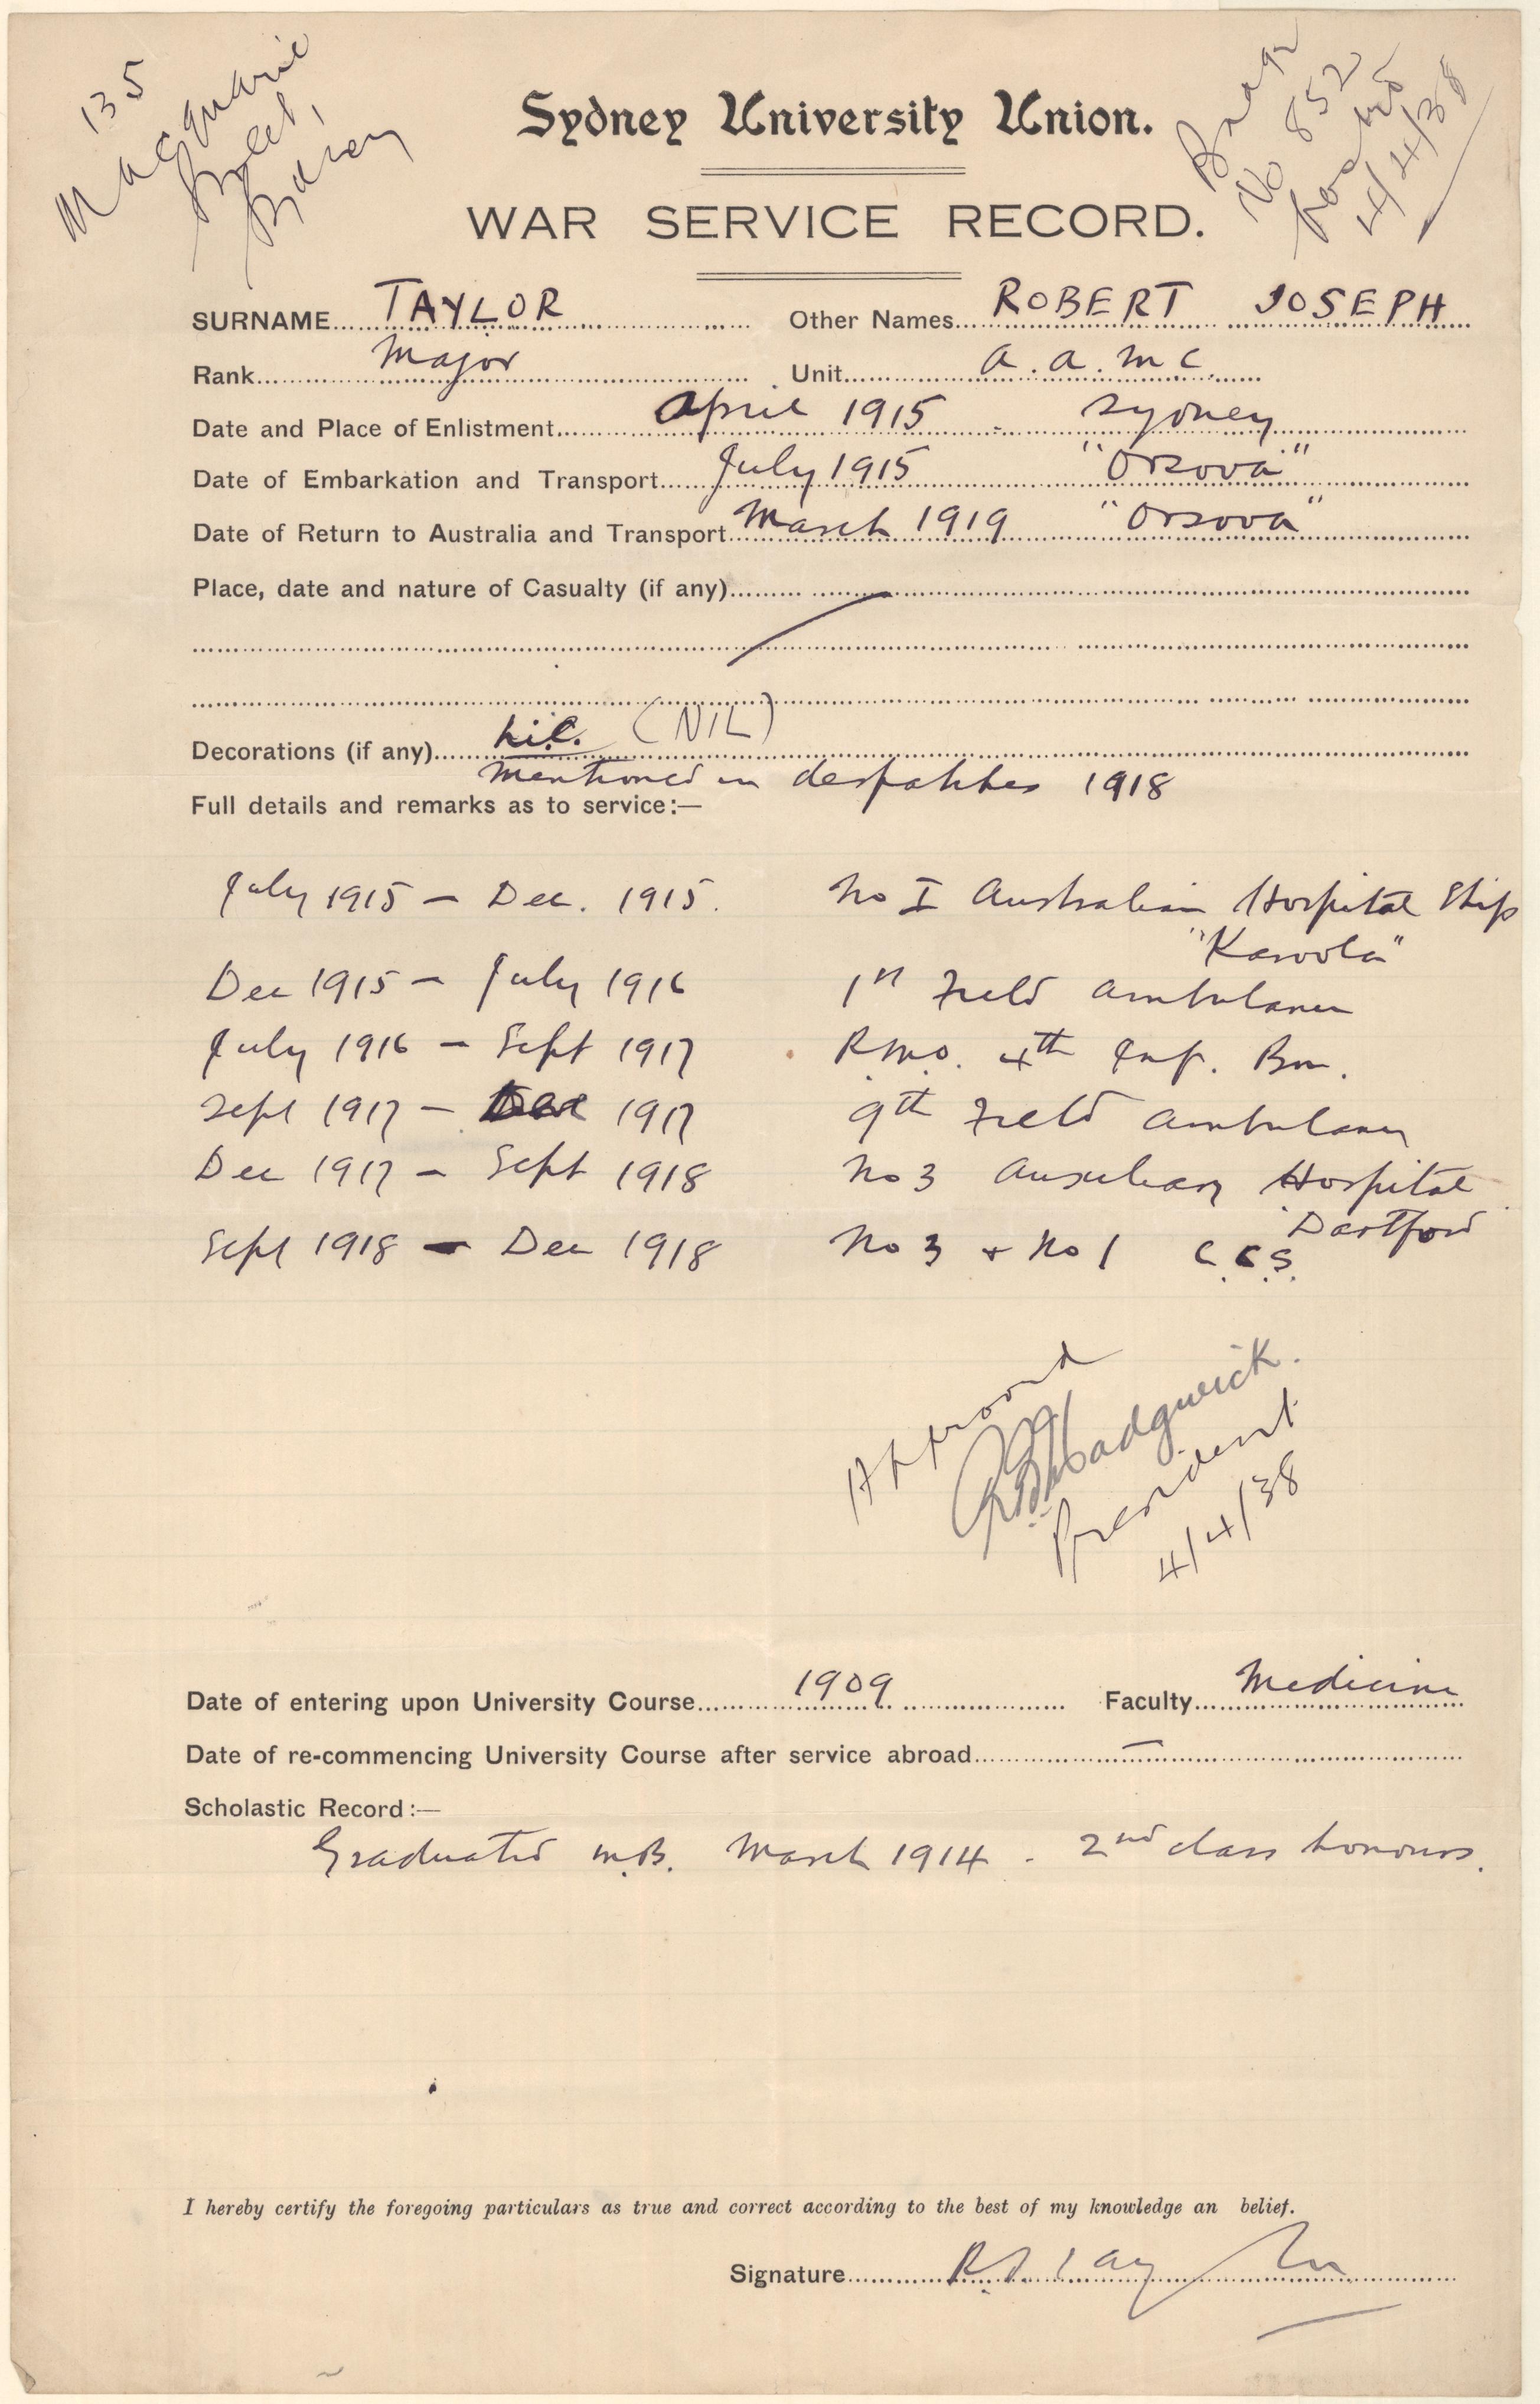 135
Macquarie
Street,
Badge
No 852
4/4/38
Sydney University Union.
WAR SERVICE RECORD.
SURNAME TAYLOR Other Names ROBERT JOSEPH
Rank Major Unit A.A.M.C.
Date and Place of Enlistment April 1915 - Sydney
Date of Embarkation and Transport July 1915 "Orsova"
Date of Return to Australia and Transport March 1919 "Orsova"
Place, date and nature of Casualty (if any)
Decorations (if any) Nil. (NIL)
Mentioned in despatches 1918
Full details and remarks as to service:—
July 1915 - Dec. 1915. No I Australian Hospital Ship
"Karoola"
Dec 1915 - July 1916 1st Field Ambulance
July 1916 - Sept 1917 R.M.O. 4th Inf. Bn.
Sept 1917 - Dec 1917 9th Field Ambulance
Dec 1917 - Sept 1918 No 3 Auxiliary Hospital
Dartford
Sept 1918 - Dec 1918 No 3 + No 1 C.C.S.
Approved
President
4/4/38
Date of entering upon University Course 1909 Faculty Medicine
Date of re-commencing University Course after service abroad —
Scholastic Record:—
Graduated M.B. March 1914 - 2nd class honours.
I hereby certify the foregoing particulars as true and correct according to the best of my knowledge an belief.
Signature R J Taylor